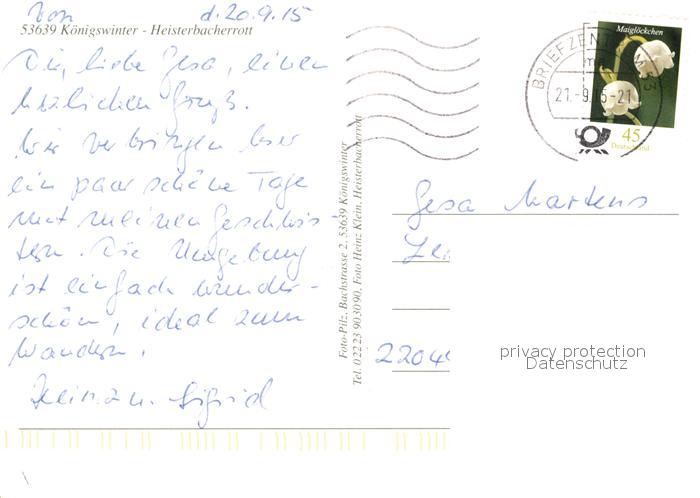 Von d. 20.9.15
53639 Königswinter - Heisterbacherrott
Dir, liebe Gesa, einen
herzlichen Gruß.
Wir verbringen hier
ein paar schöne Tage
mit meinen Geschwis-
tern. Die Umgebung
ist einfach wunder-
schön, ideal zum
Wandern.
Heiner u. Sigrid
Foto-Pilz, Bachstrasse 2, 53639 Königswinter
Tel. 02223 903090, Foto Heinz Klein, Heisterbacherrott
BRIEFZEN
21.-9.15-21
Maiglöckchen
45
Deutschland
Gesa Martens
2204
privacy protection
Datenschutz